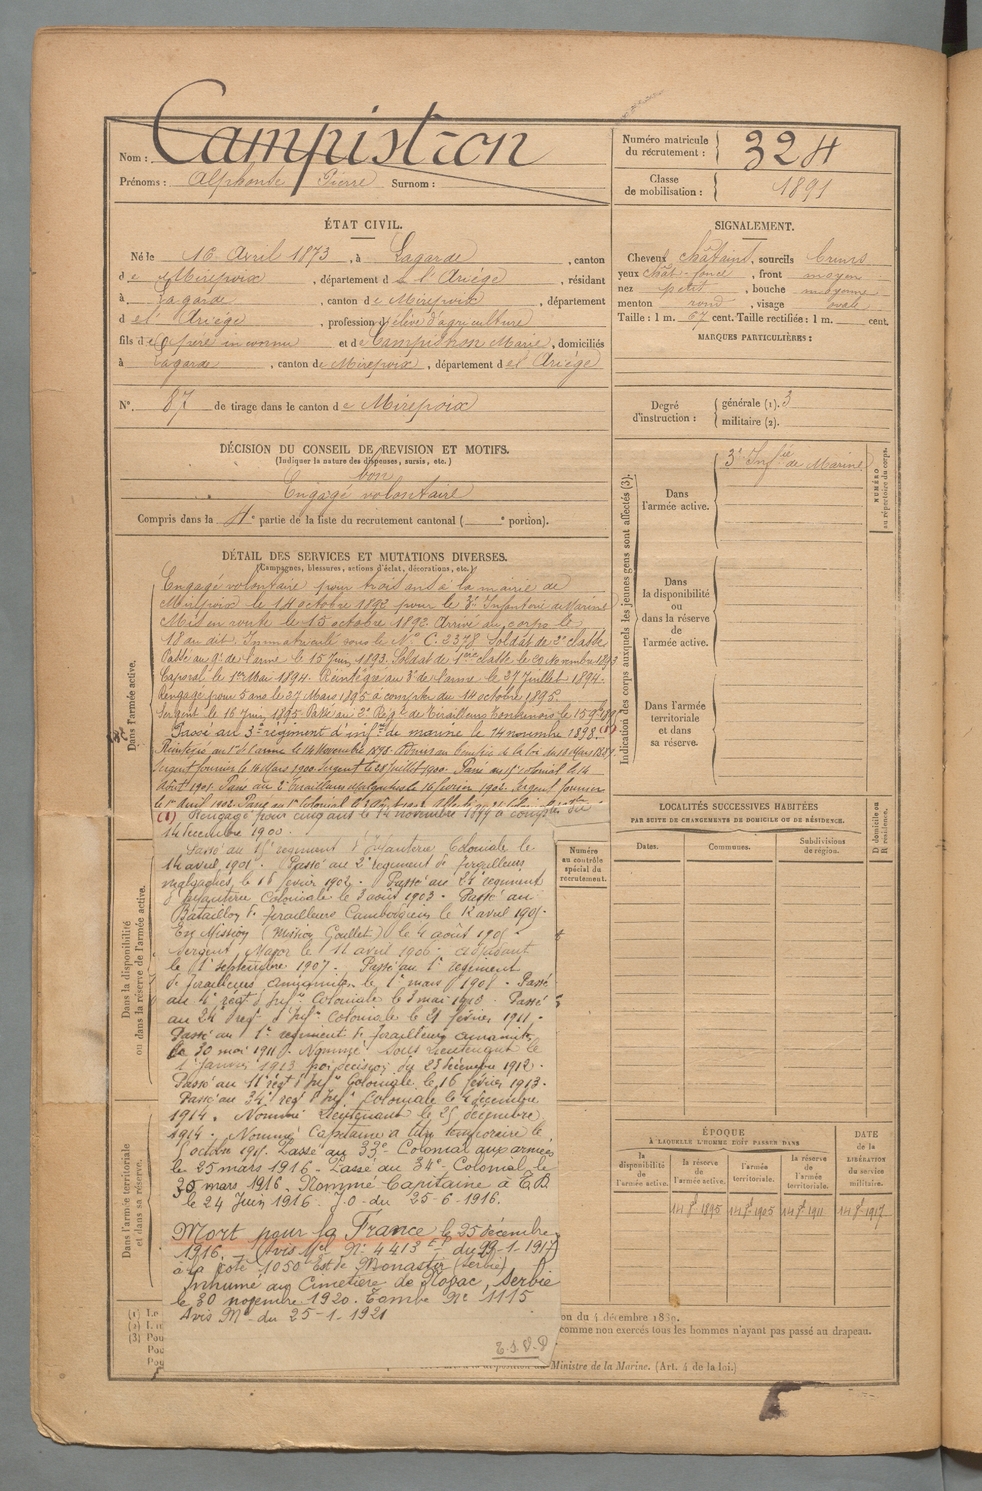 Nom : Campistron
Prénoms : Alphonse Pierre Surnom :
Numéro matricule du recrutement : 324
Classe de mobilisation : 1891
ÉTAT CIVIL.
Né le 16 Avril 1873, à Lagarde, canton
de Mirepoix, département de l'Ariège, résidant
à Lagarde, canton de Mirepoix, département
de l'Ariège, profession d'élève d'agriculture
fils de père inconnu et de Campistron Marie, domiciliés
à Lagarde, canton de Mirepoix, département de l'Ariège
N°. 87 de tirage dans le canton de Mirepoix
SIGNALEMENT.
Cheveux châtains, sourcils bruns
yeux chât. foncé, front moyen
nez petit, bouche moyenne
menton rond, visage ovale
Taille : 1 m. 67 cent. Taille rectifiée : 1 m. cent.
MARQUES PARTICULIÈRES :
Degré d'instruction : générale (1). 3
militaire (2).
DÉCISION DU CONSEIL DE REVISION ET MOTIFS.
(Indiquer la nature des dispenses, sursis, etc.)
bon
Engagé volontaire
Compris dans la 4e partie de la liste du recrutement cantonal ( e portion).
DÉTAIL DES SERVICES ET MUTATIONS DIVERSES.
(Campagnes, blessures, actions d'éclat, décorations, etc.)
Dans l'armée active.
Engagé volontaire pour trois ans à la mairie de
Mirepoix le 14 octobre 1892 pour le 3e Infanterie de Marine
Mis en route le 15 octobre 1892. Arrivé au corps le
18 au dit. Immatriculé sous le N° C. 2378 Soldat de 2e classe
Passé au 9e de l'arme le 15 Juin 1893. Soldat de 1ère classe le 20 Novembre 1893
Caporal le 1er Mai 1894. Réintégré au 3e de l'arme le 27 Juillet 1894.
Rengagé pour 5 ans le 27 Mars 1895 à compter du 14 octobre 1895.
Sergent le 16 Juin 1895. Passé au 3e Régt de Tirailleurs Tonkinois le 15
Passé au 3e régiment d'infie de marine le 14 novembre 1898. (1)
Réintégré au 1er de l'arme le 14 Novembre 1898.
Sergent fourrier le 16 Mars 1900. Sergent le 28 Juillet 1900. Passé au 15e colonial le 14
Août 1901. Passé au 2e Tirailleurs Malgaches le 16 février 1902. Sergent fourrier
le 1er Avril 1902. Passé au 1er Colonial
(1) Rengagé pour cinq ans le 14 novembre 1899 à compter du
14 décembre 1900.
Passé au 15e régiment d'Infanterie Coloniale le
14 avril 1901. Passé au 2e régiment de Tirailleurs
malgaches le 16 février 1902. Passé au 24e régiment
d'Infanterie Coloniale le 3 août 1903. Passé au
Bataillon de Tirailleurs Cambodgiens le 12 avril 1905.
En Mission (Mission Goullet) le 4 août 1905.
Sergent Major le 11 avril 1906. adjudant
le 1er septembre 1907. Passé au 1er régiment
de Tirailleurs annamites le 1er mars 1908. Passé
au 4e régt d'Infie Coloniale le 3 mai 1910. Passé
au 24e régt d'Infie Coloniale le 21 février 1911.
Passé au 1er régiment de Tirailleurs annamites
le 30 mai 1911. Nommé Sous Lieutenant le
1er janvier 1913 par décision du 23 décembre 1912.
Passé au 11e régt d'Infie Coloniale le 16 février 1913.
Passé au 34e régt d'Infie Coloniale le 4 décembre
1914. Nommé Lieutenant le 25 décembre
1914. Nommé Capitaine à titre temporaire le
octobre 1915. Passé au 33e Colonial aux armées
le 25 mars 1916. Passé au 34e Colonial le
30 mars 1916. Nommé Capitaine à T.D.
le 24 Juin 1916. J.O. du 25-6-1916.
Mort pour la France le 25 décembre
1916. Avis Mel N° 4413 du 29-1-1917
à la cote 1050 Est de Monastir (Serbie)
Inhumé au Cimetière de Novac, Serbie
le 30 novembre 1920. Tombe N° 1115
Avis Mel du 25-1-1921
T.S.V.P
Dans la disponibilité ou dans la réserve de l'armée active.
Dans l'armée territoriale et dans sa réserve.
Indication des corps auxquels les jeunes gens sont affectés (3).
Dans l'armée active. 3e Infie de Marine
NUMÉRO au répertoire du corps.
Dans la disponibilité ou dans la réserve de l'armée active.
Dans l'armée territoriale et dans sa réserve.
LOCALITÉS SUCCESSIVES HABITÉES
PAR SUITE DE CHANGEMENTS DE DOMICILE OU DE RÉSIDENCE.
Numéro au contrôle spécial du recrutement.
Dates. Communes. Subdivisions de région. D domicile ou R résidence.
ÉPOQUE
À LAQUELLE L'HOMME DOIT PASSER DANS
la disponibilité de l'armée active. la réserve de l'armée active. l'armée territoriale. la réserve de l'armée territoriale. DATE de la LIBÉRATION du service militaire.
14 8bre 1895 14 8bre 1905 14 8bre 1911 14 8bre 1917
(1) Le
(2)
(3) Pou
on du 4 décembre 1889.
comme non exercés tous les hommes n'ayant pas passé au drapeau.
Ministre de la Marine. (Art. 4 de la loi.)